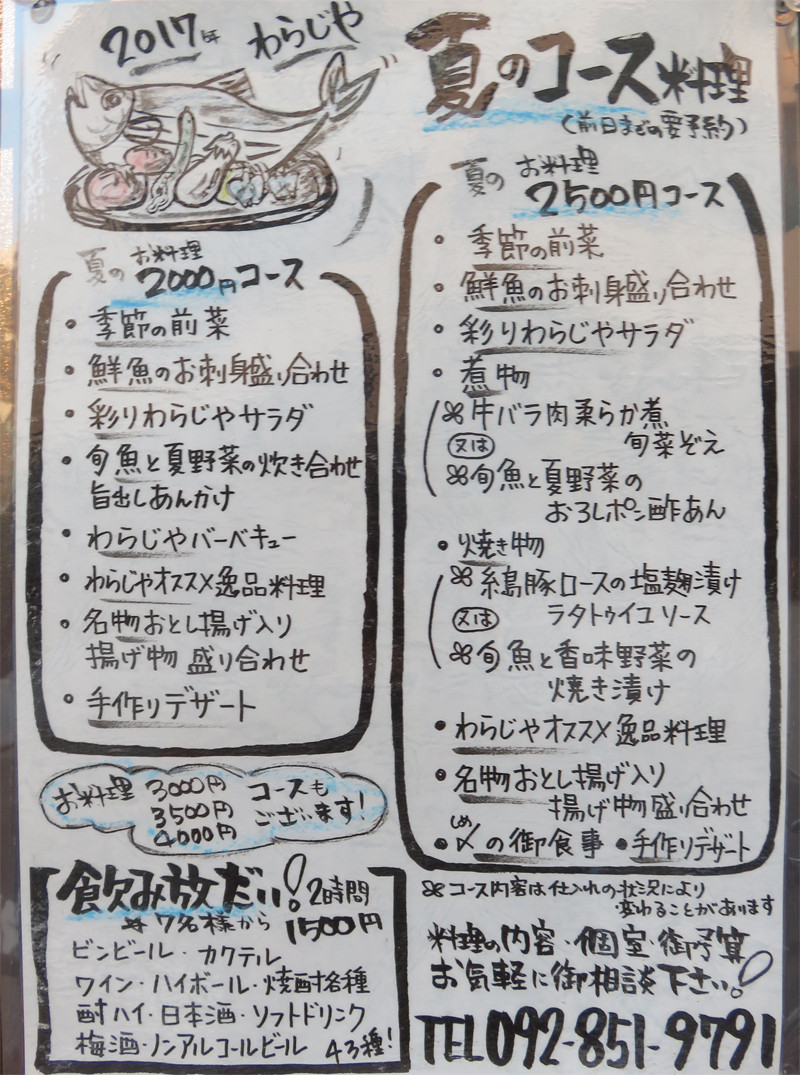 2017年 わらじや
夏のコース料理
(前日までの要予約)
夏の お料理
2000円コース
・季節の前菜
・鮮魚のお刺身盛り合わせ
・彩りわらじやサラダ
・旬魚と夏野菜の炊き合わせ
旨出しあんかけ
・わらじやバーベキュー
・わらじやオススメ逸品料理
・名物おとし揚げ入り
揚げ物 盛り合わせ
・手作りデザート
お料理 3000円 コースも
3500円 ございます!
4000円
飲み放だい! 2時間
※7名様から 1500円
ビンビール・カクテル
ワイン・ハイボール・焼酎各種
酎ハイ・日本酒・ソフトドリンク
梅酒・ノンアルコールビール 43種!
夏の お料理
2500円コース
・季節の前菜
・鮮魚のお刺身盛り合わせ
・彩りわらじやサラダ
・煮物
※牛バラ肉柔らか煮
又は 旬菜ぞえ
※旬魚と夏野菜の
おろしポン酢あん
・焼き物
※糸島豚ロースの塩麹漬け
又は ラタトゥイユソース
※旬魚と香味野菜の
焼き漬け
・わらじやオススメ逸品料理
・名物おとし揚げ入り
揚げ物盛り合わせ
・〆(しめ)の御食事 ・手作りデザート
※コース内容は仕入れの状況により
変わることがあります
料理の内容・個室・御予算
お気軽に御相談下さい!
TEL092-851-9791